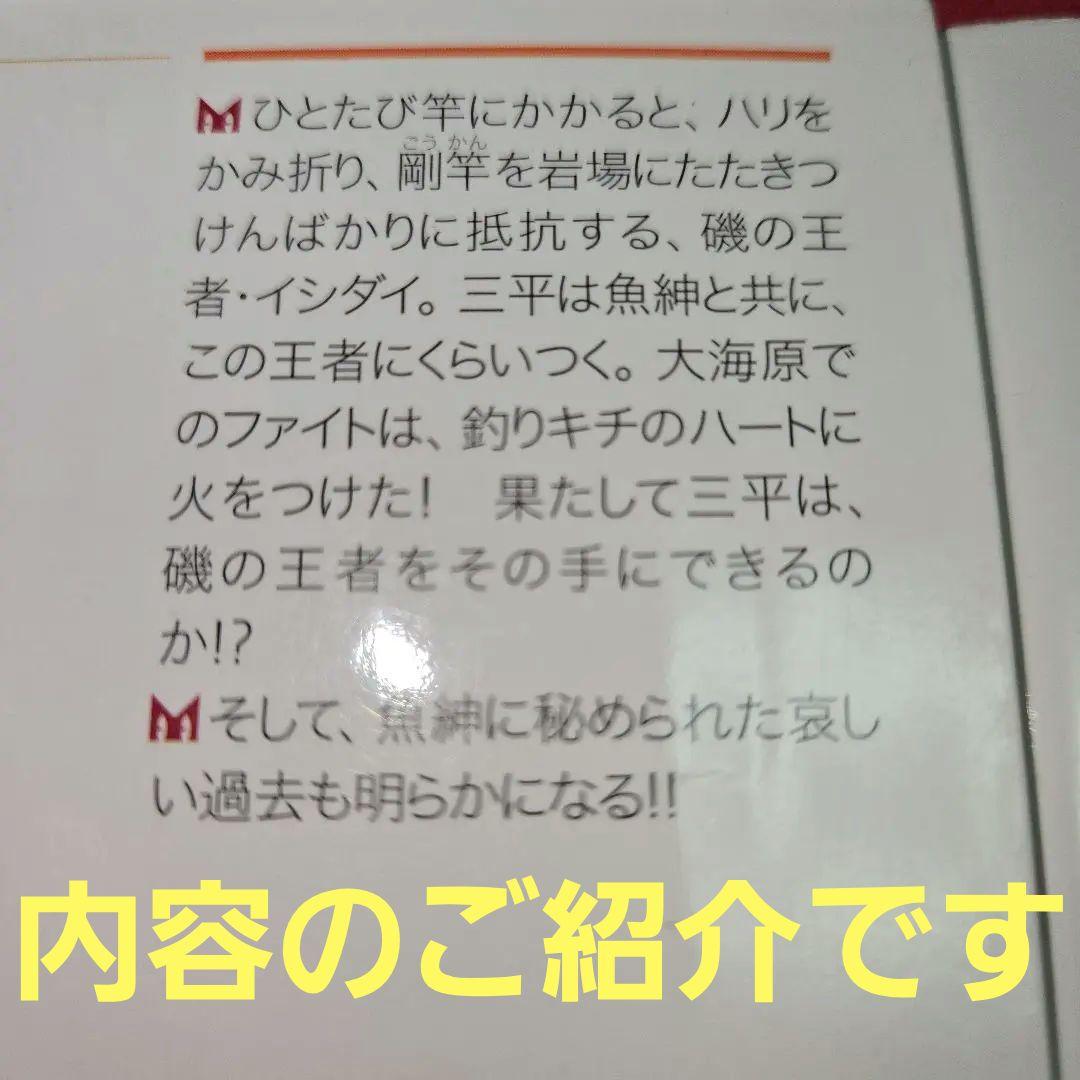 ひとたび竿にかかると、ハリを
かみ折り、剛竿を岩場にたたきつ
こうかん
けんばかりに抵抗する、磯の王
者・イシダイ。三平は魚紳と共に、
この王者にくらいつく。大海原で
のファイトは、釣りキチのハートに
火をつけた！　果たして三平は、
磯の王者をその手にできるの
か!?
そして、魚紳に秘められた哀し
い過去も明らかになる!!
内容のご紹介です